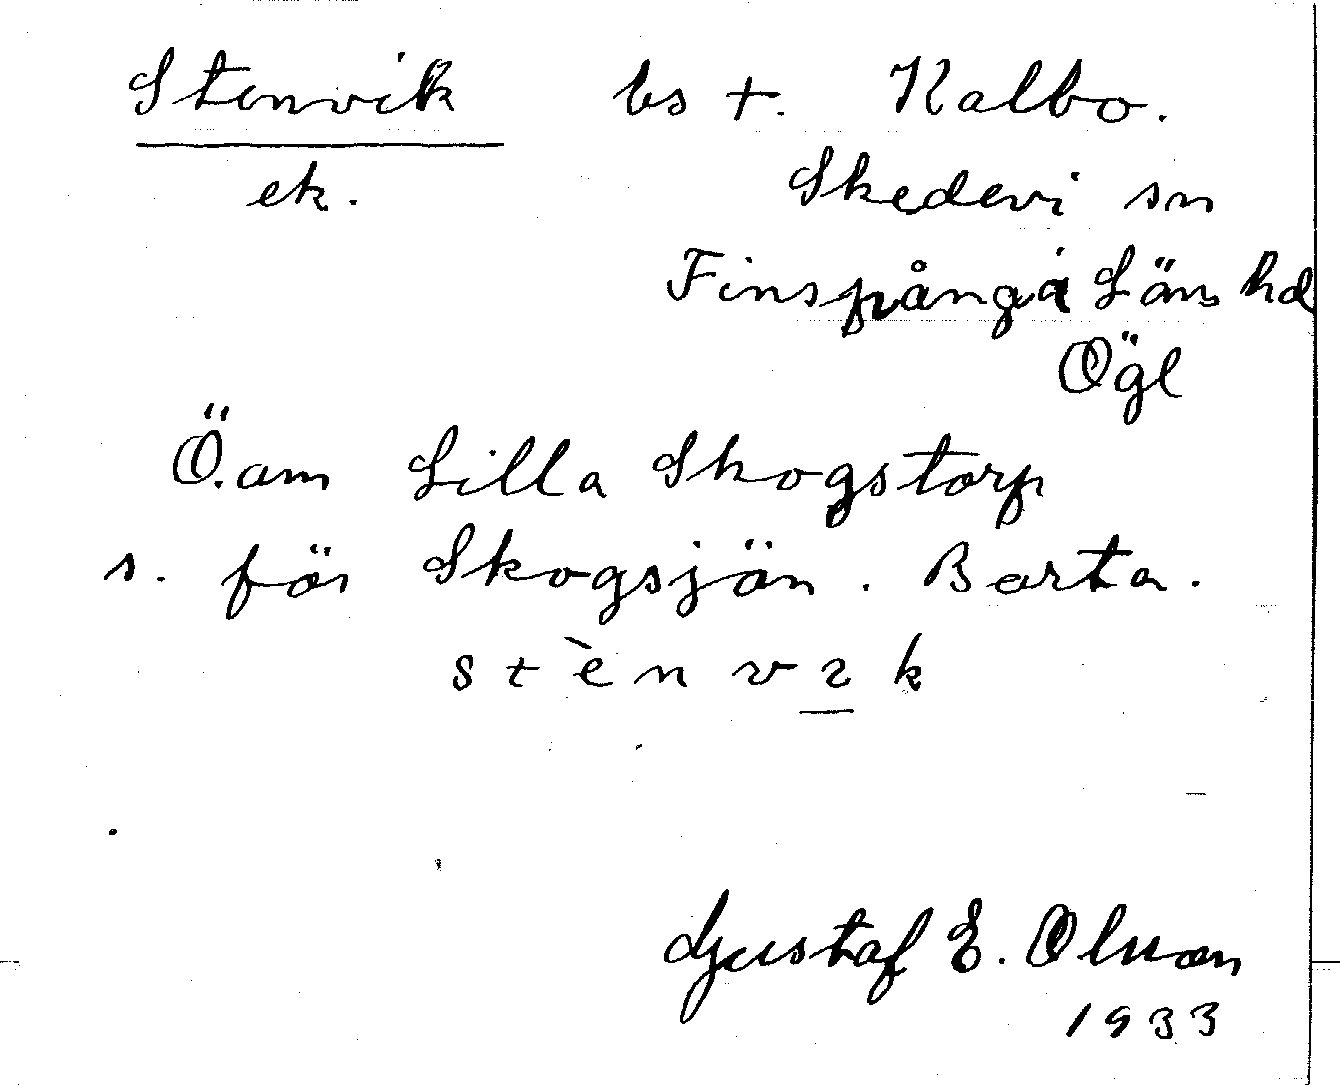 Stenvik bs t. Kalbo.
ek. Skedevi sn
Finspånga Läns hd
Ögl
Ö.am Lilla Skogstorp
s. för Skogsjön. Borta.
stènvık
Gustaf E. Olson
1933